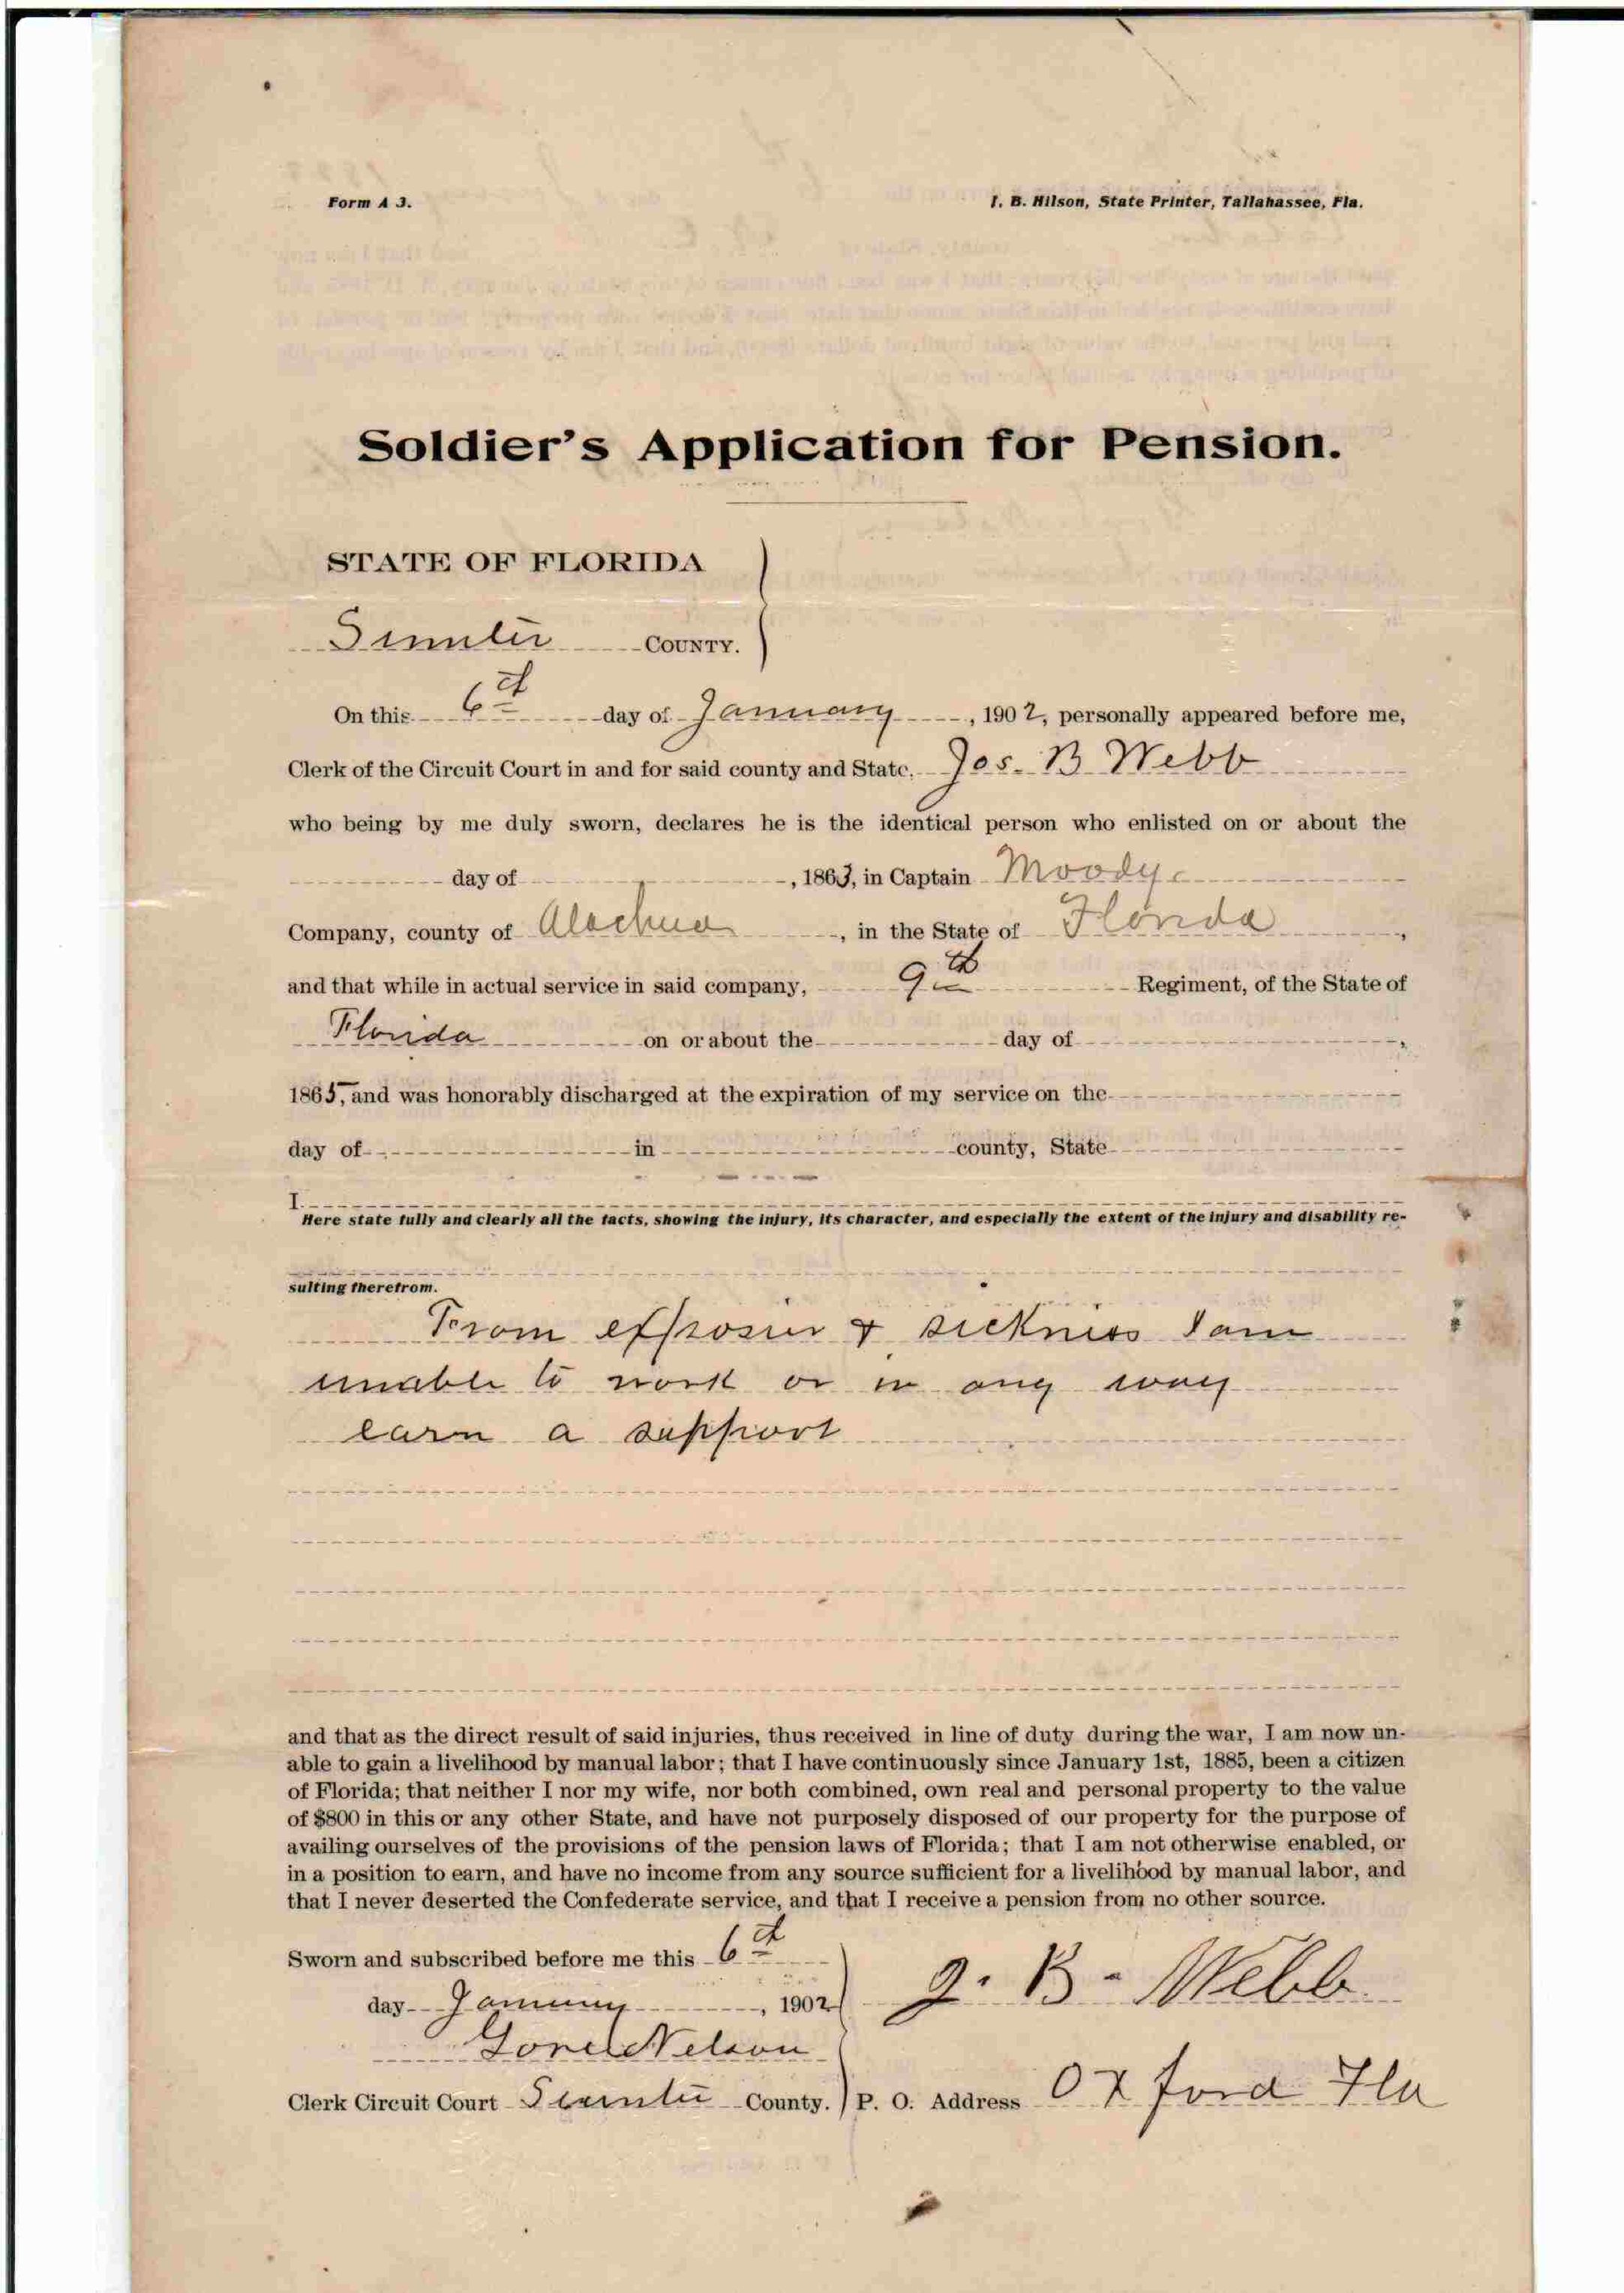 Form A 3.
I. B. Hilson, State Printer, Tallahassee, Fla.
Soldier's Application for Pension.
STATE OF FLORIDA
Sumter COUNTY.
On this 6th day of January, 1902, personally appeared before me,
Clerk of the Circuit Court in and for said county and State, Jos. B Webb
who being by me duly sworn, declares he is the identical person who enlisted on or about the
day of , 1863, in Captain Moody
Company, county of Alachua, in the State of Florida,
and that while in actual service in said company, 9th Regiment, of the State of
Florida on or about the day of ,
1865, and was honorably discharged at the expiration of my service on the
day of in county, State
I
Here state fully and clearly all the facts, showing the injury, its character, and especially the extent of the injury and disability re-
sulting therefrom.
From exposur & sickness I am
unable to work or in any way
earn a support
and that as the direct result of said injuries, thus received in line of duty during the war, I am now un-
able to gain a livelihood by manual labor; that I have continuously since January 1st, 1885, been a citizen
of Florida; that neither I nor my wife, nor both combined, own real and personal property to the value
of $800 in this or any other State, and have not purposely disposed of our property for the purpose of
availing ourselves of the provisions of the pension laws of Florida; that I am not otherwise enabled, or
in a position to earn, and have no income from any source sufficient for a livelihood by manual labor, and
that I never deserted the Confederate service, and that I receive a pension from no other source.
Sworn and subscribed before me this 6th
day January, 1902
J. B. Webb
Nelson
Clerk Circuit Court Sumter County. P. O. Address Oxford Fla